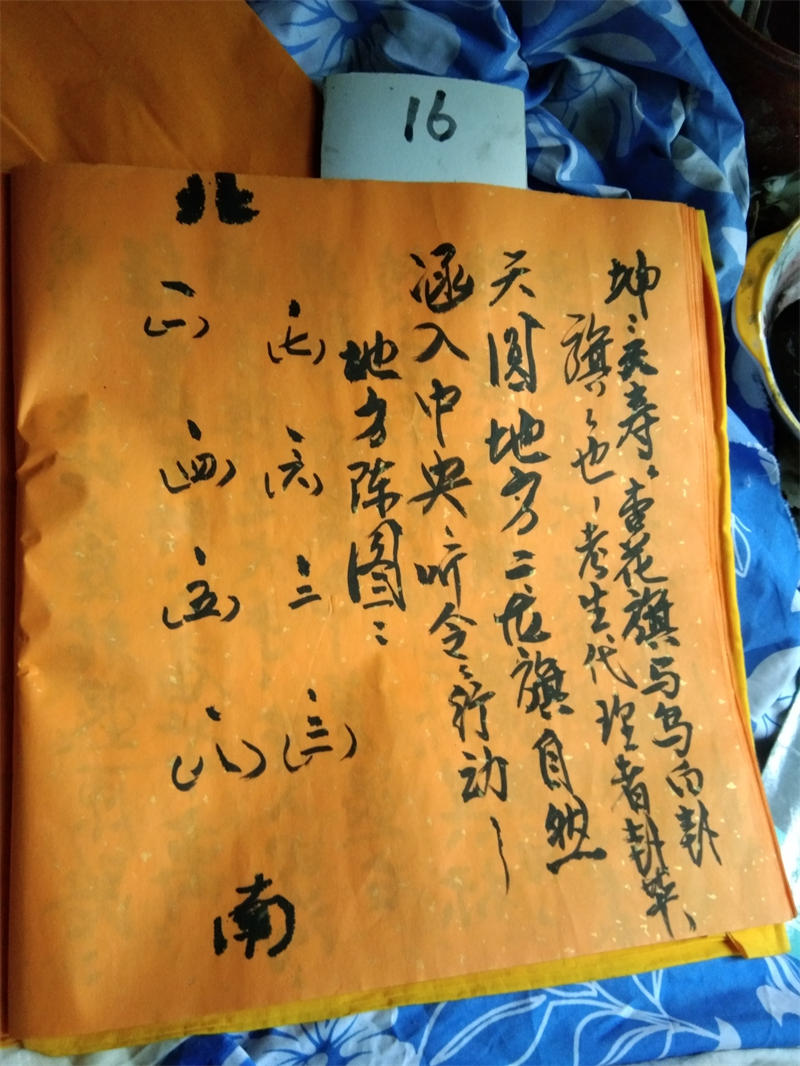 16
坤、天寿、杏花旗与乌向卦
旗、也、考生代理者卦毕、
天圆地方二龙旗自然
涵入中央、听令、行动
地方陈图
北
(七) (一)
(六) (四)
二 (五)
(三) (八)
南